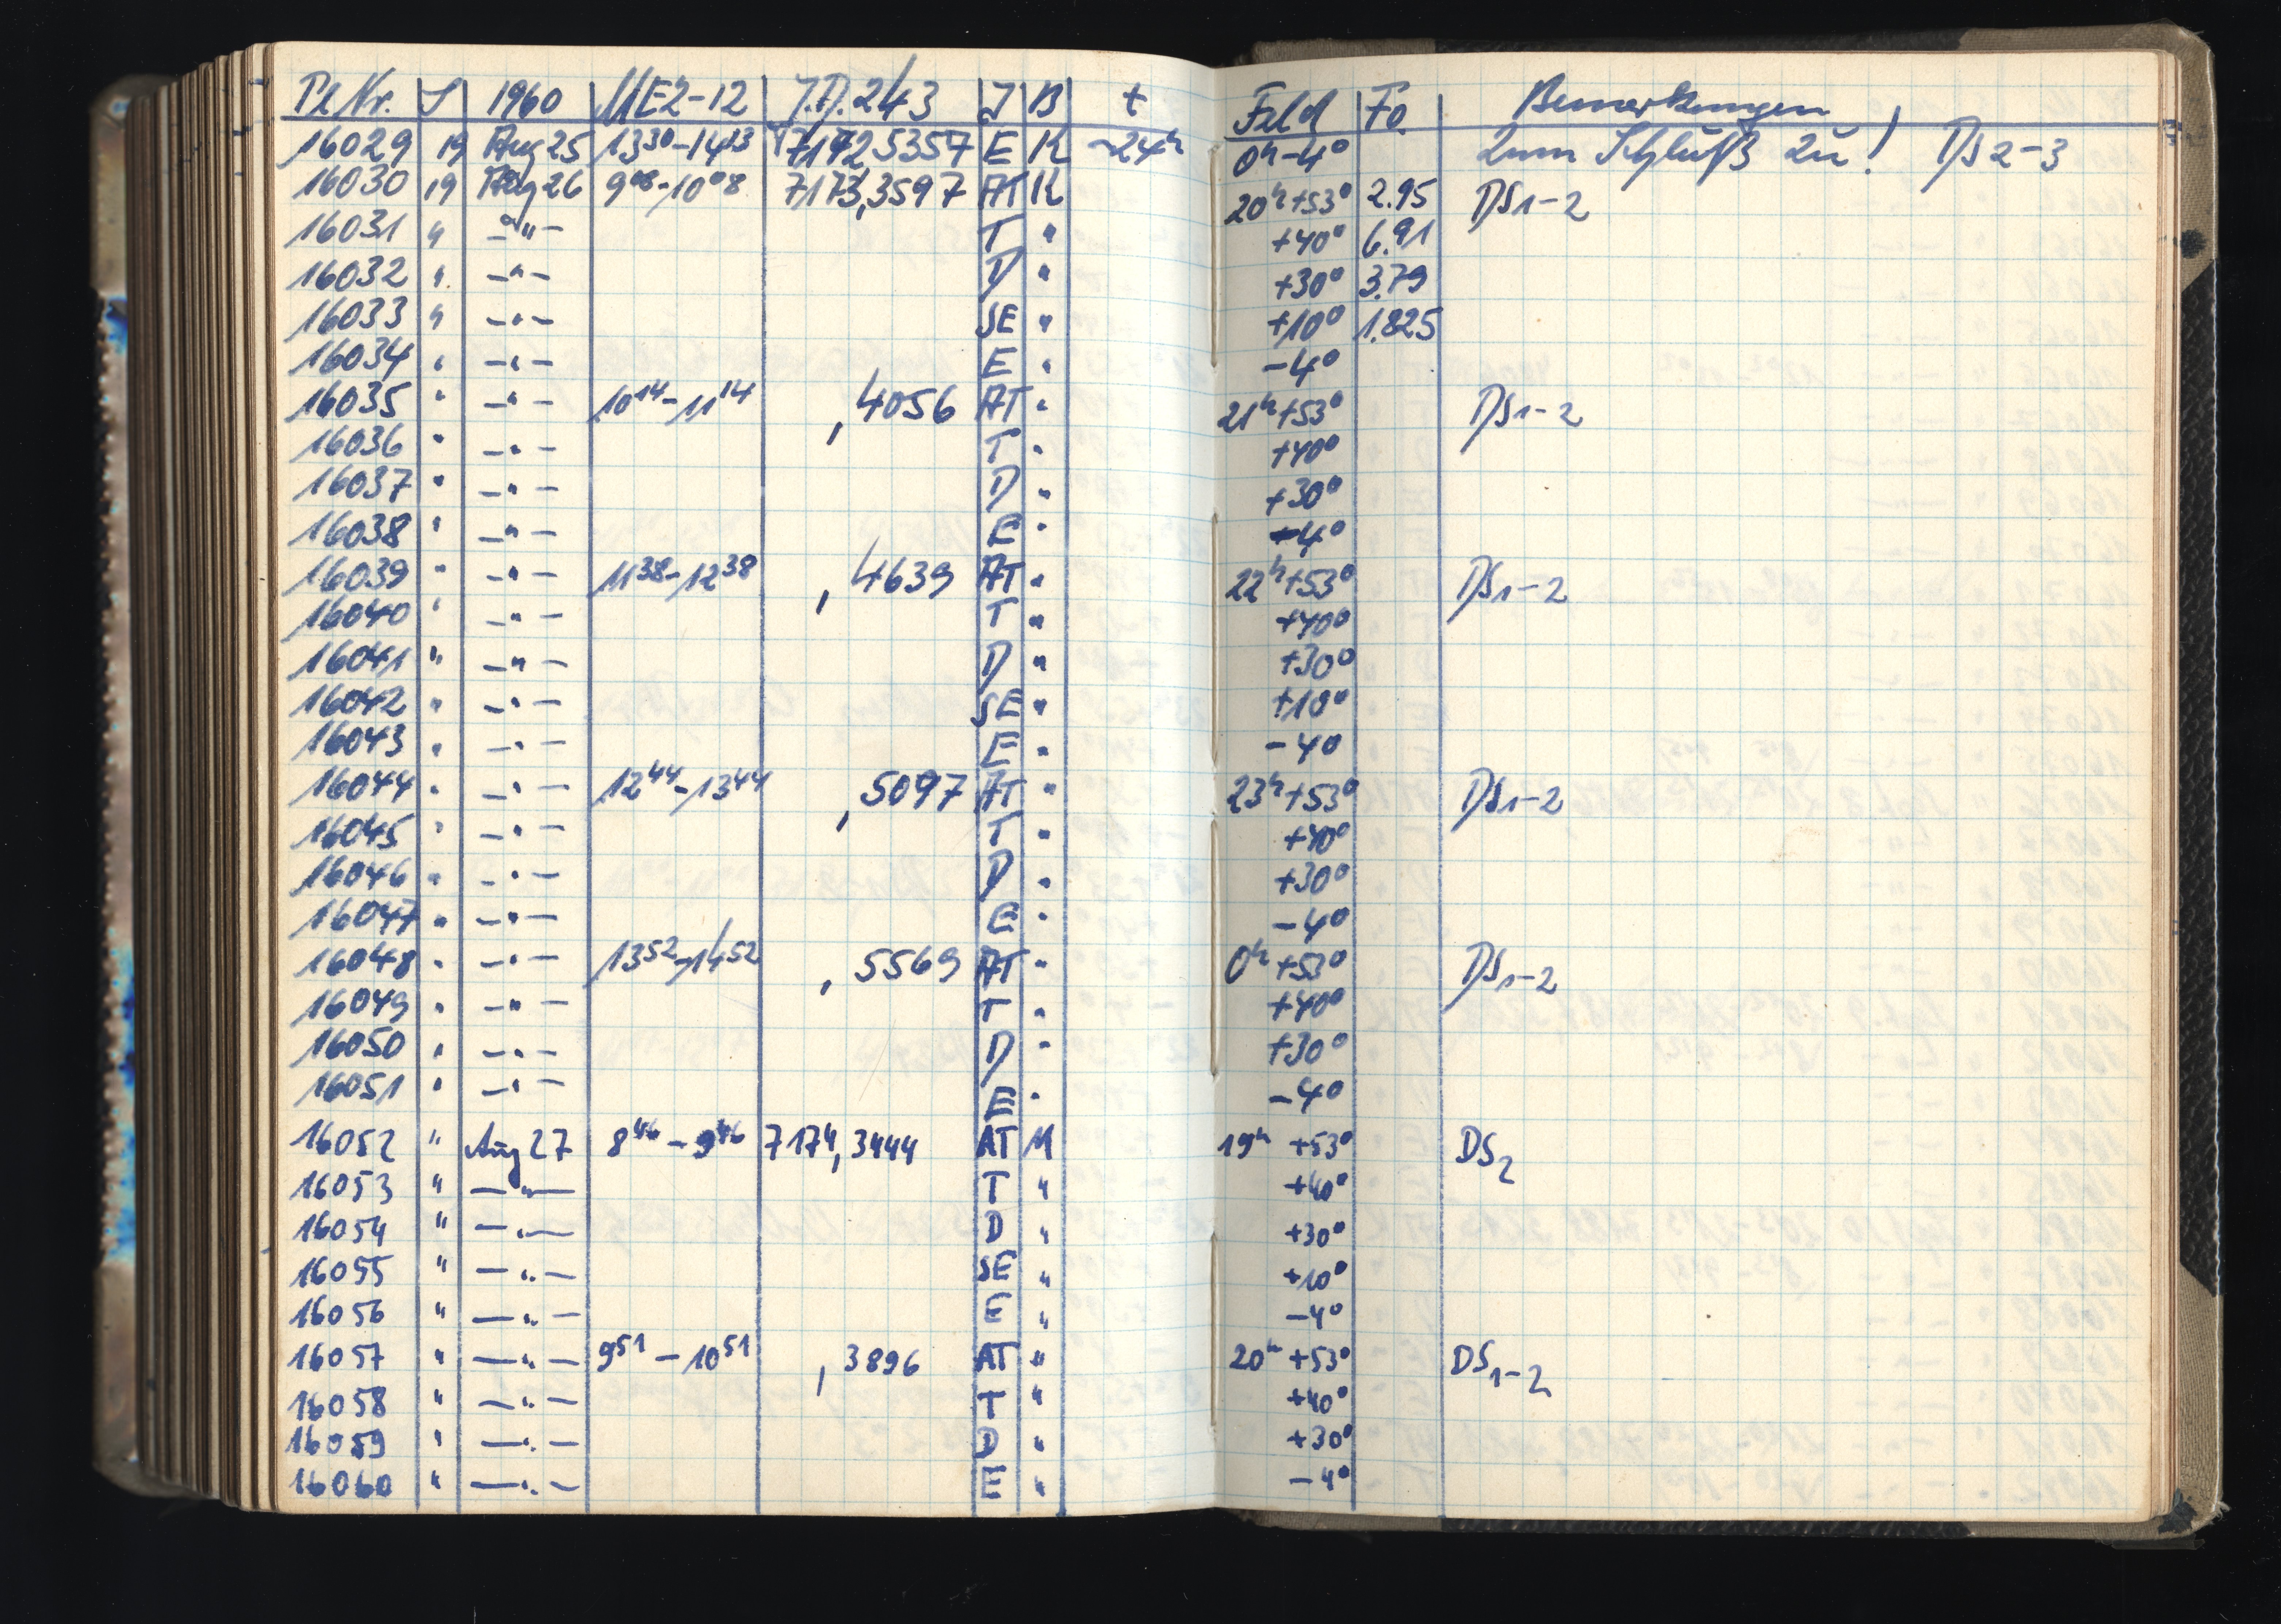 Pl Nr. S 1960 ME2-12 J.D. 243 J B t Feld Fo Bemerkungen
16029 19 Aug 25 13³⁰-14¹³ 7172,5357 E K ~24ʰ 0ʰ-4° Zum Schluß zu! DS2-3
16030 19 Aug 26 9⁰⁸-10⁰⁸ 7173,3597 AT K 20ʰ+53° 2.95 DS1-2
16031 " -"- T " +40° 6.91
16032 " -"- D " +30° 3.79
16033 " -"- SE " +10° 1.825
16034 " -"- E " -4°
16035 " -"- 10¹⁴-11¹⁴ ,4056 AT " 21ʰ+53° DS1-2
16036 " -"- T " +40°
16037 " -"- D " +30°
16038 " -"- E " -4°
16039 " -"- 11³⁸-12³⁸ ,4639 AT " 22ʰ+53° DS1-2
16040 " -"- T " +40°
16041 " -"- D " +30°
16042 " -"- SE " +10°
16043 " -"- E " -4°
16044 " -"- 12⁴⁴-13⁴⁴ ,5097 AT " 23ʰ+53° DS1-2
16045 " -"- T " +40°
16046 " -"- D " +30°
16047 " -"- E " -4°
16048 " -"- 13⁵²-14⁵² ,5569 AT " 0ʰ+53° DS1-2
16049 " -"- T " +40°
16050 " -"- D " +30°
16051 " -"- E " -4°
16052 " Aug 27 8⁴⁶-9⁴⁶ 7174,3444 AT M 19ʰ +53° DS2
16053 " -"- T " +40°
16054 " -"- D " +30°
16055 " -"- SE " +10°
16056 " -"- E " -4°
16057 " -"- 9⁵¹-10⁵¹ ,3896 AT " 20ʰ +53° DS1-2
16058 " -"- T " +40°
16059 " -"- D " +30°
16060 " -"- E " -4°